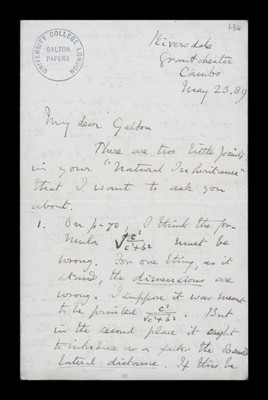 136
UNIVERSITY COLLEGE LONDON
GALTON
PAPERS
Riversdale
Grantchester
Cambs
May 23. 89
My dear Galton
There are two little points
in your "Natural Inheritance"
that I want to ask you
about.
1. On p-70, I think the for-
mula √ c²/c²+b² must be
wrong. For one thing, as it
stands, the dimensions are
wrong. I suppose it was meant
to be printed c²/√c²+b². But
in the second place it ought
to introduce as a factor the
lateral distance. If this be